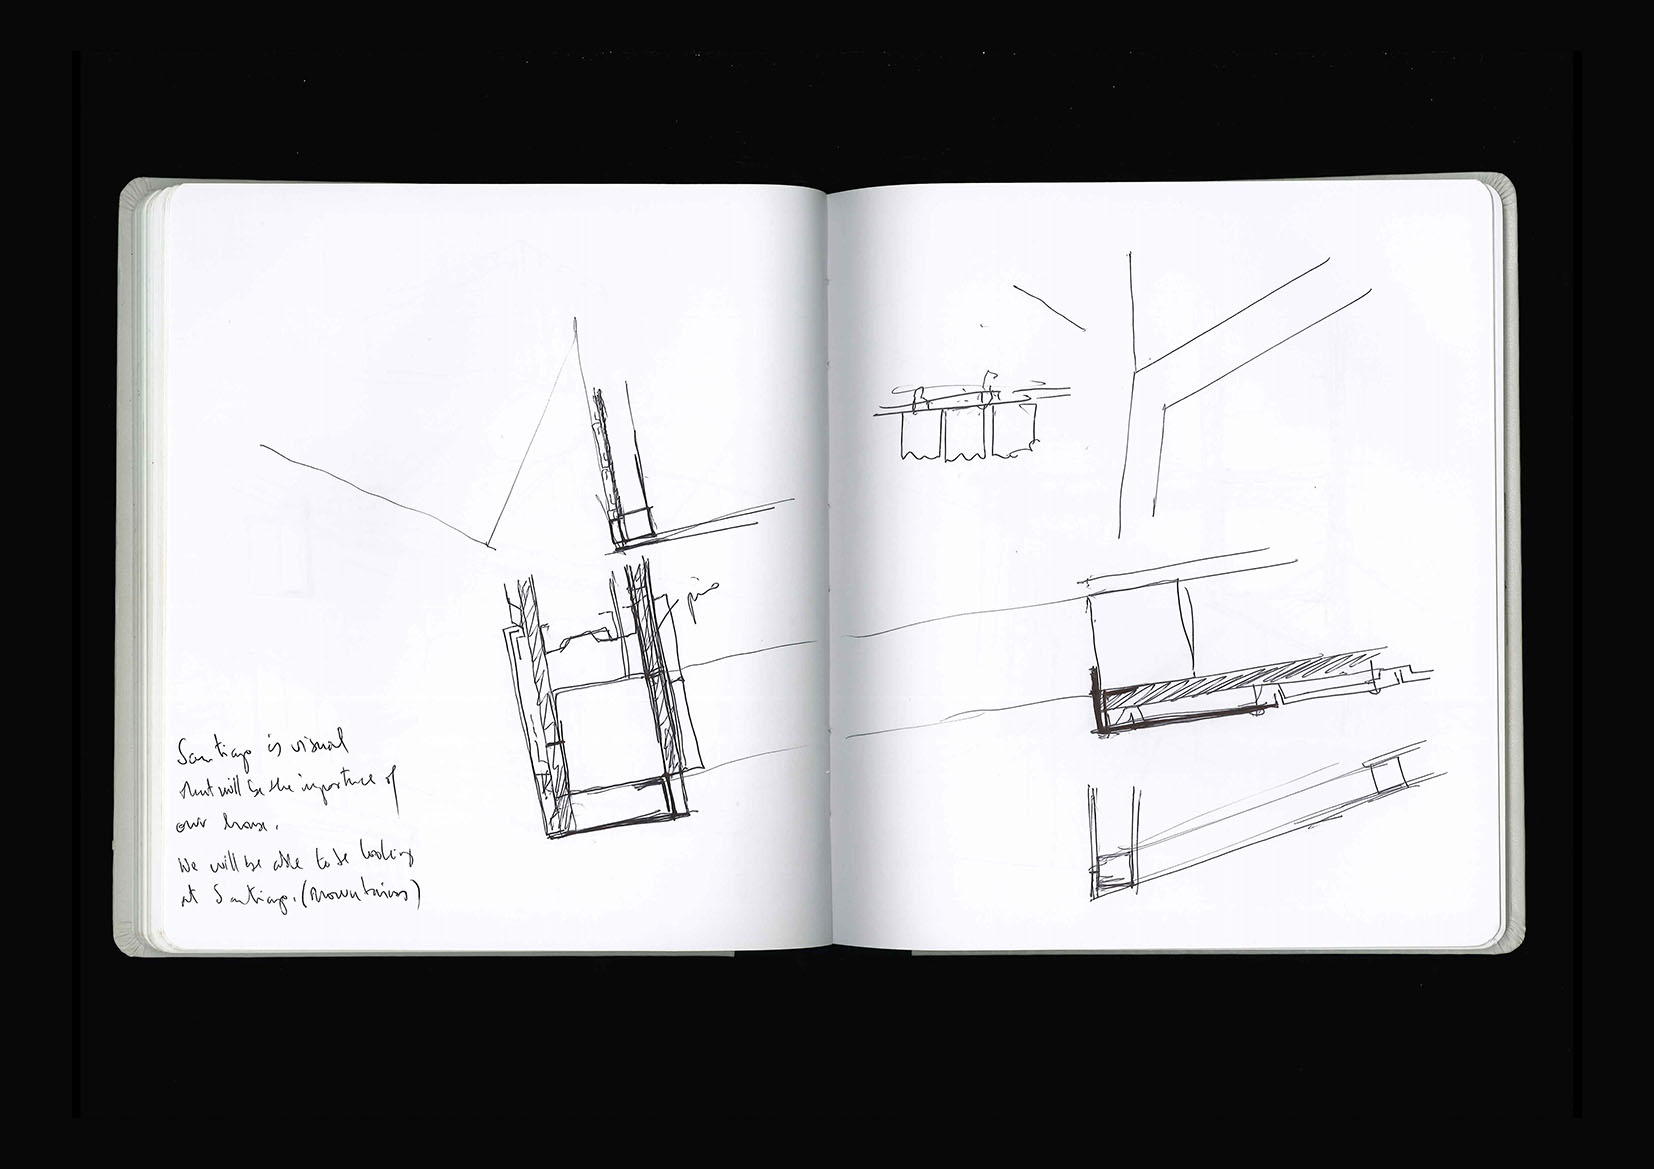 pino
Santiago is visual
that will be the importance of
our house.
We will be able to be looking
at Santiago. (Mountains)